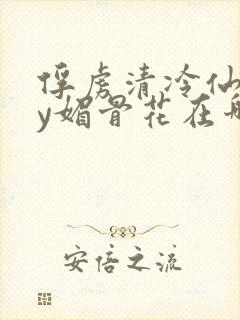 俘虏清冷仙
y媚骨花在
安倍之流